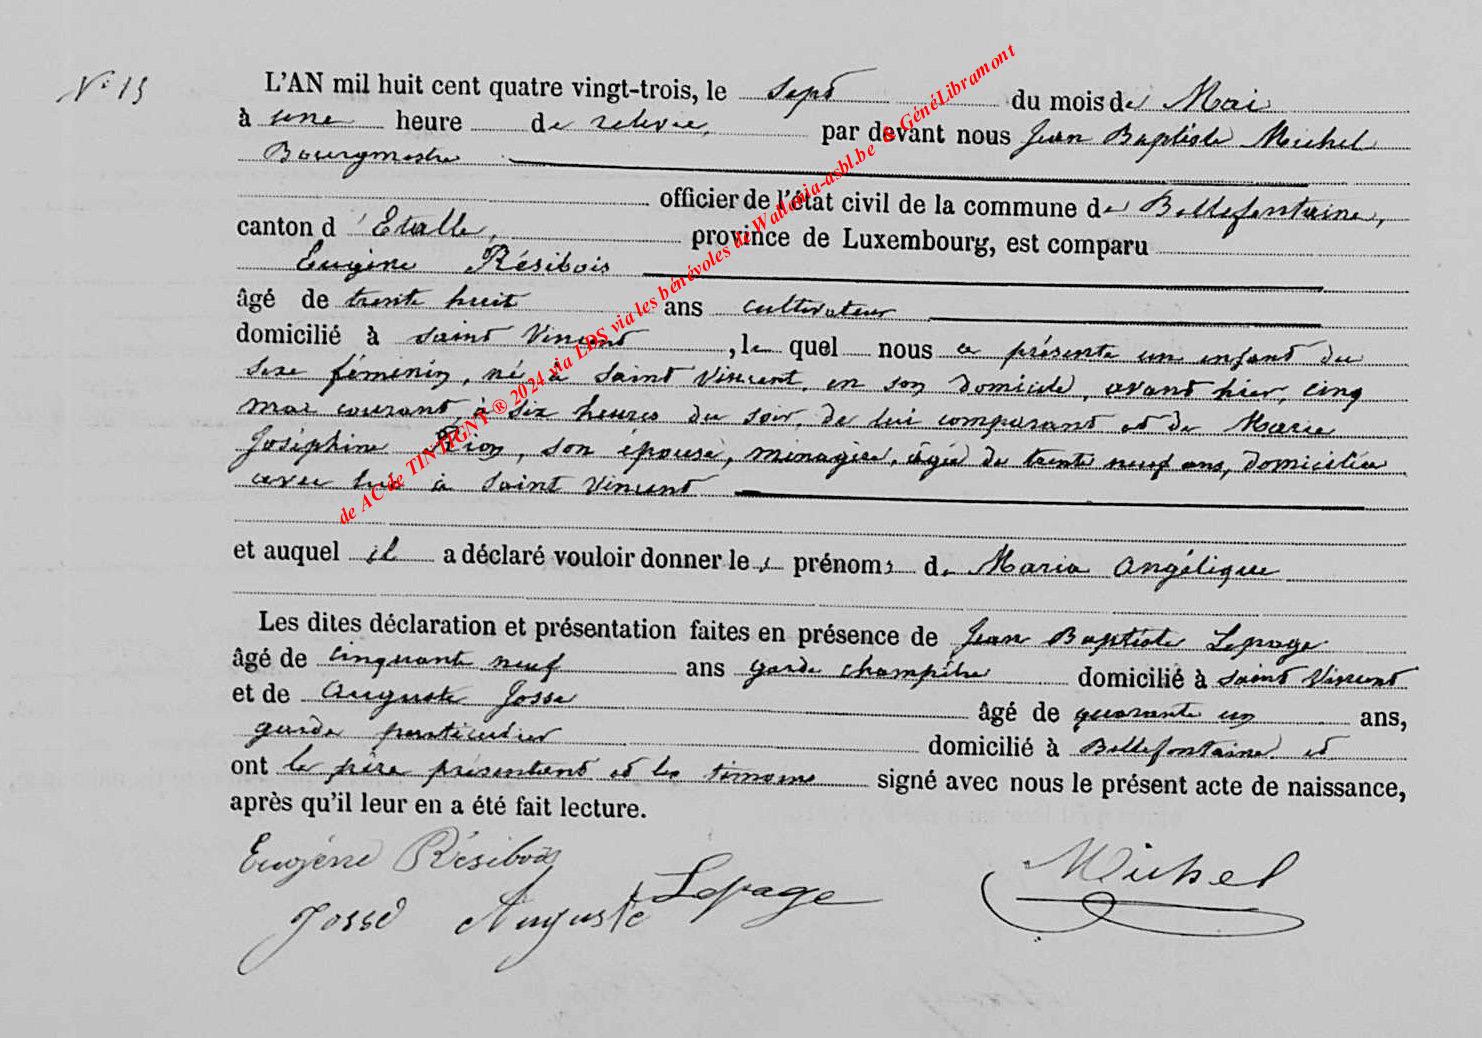 N° 15
L'AN mil huit cent quatre vingt-trois, le sept du mois de Mai
à une heure de relevée, par devant nous Jean Baptiste Michel
Bourgmestre
officier de l'état civil de la commune de Bellefontaine,
canton d'Etalle, province de Luxembourg, est comparu
Eugène Résibois
âgé de trente huit ans cultivateur
domicilié à Saint Vincent, le quel nous a présenté un enfant du
sexe féminin, né à Saint Vincent, en son domicile, avant hier, cinq
mai courant, à six heures du soir, de lui comparant et de Marie
Joséphine, son épouse, ménagère, âgée de trente neuf ans, domiciliée
avec lui à Saint Vincent
et auquel il a déclaré vouloir donner les prénoms de Maria Angélique
Les dites déclaration et présentation faites en présence de Jean Baptiste Lepage
âgé de cinquante neuf ans garde champêtre domicilié à Saint Vincent
et de Auguste Josse âgé de quarante un ans,
garde particulier domicilié à Bellefontaine et
ont le père présentent et les témoins signé avec nous le présent acte de naissance,
après qu'il leur en a été fait lecture.
Eugène Résibois
Josse Auguste Lepage Michel
de AC de TINTIGNY ® 2024 via LDS via les bénévoles de Wallonia-asbl.be & GénéLibramont